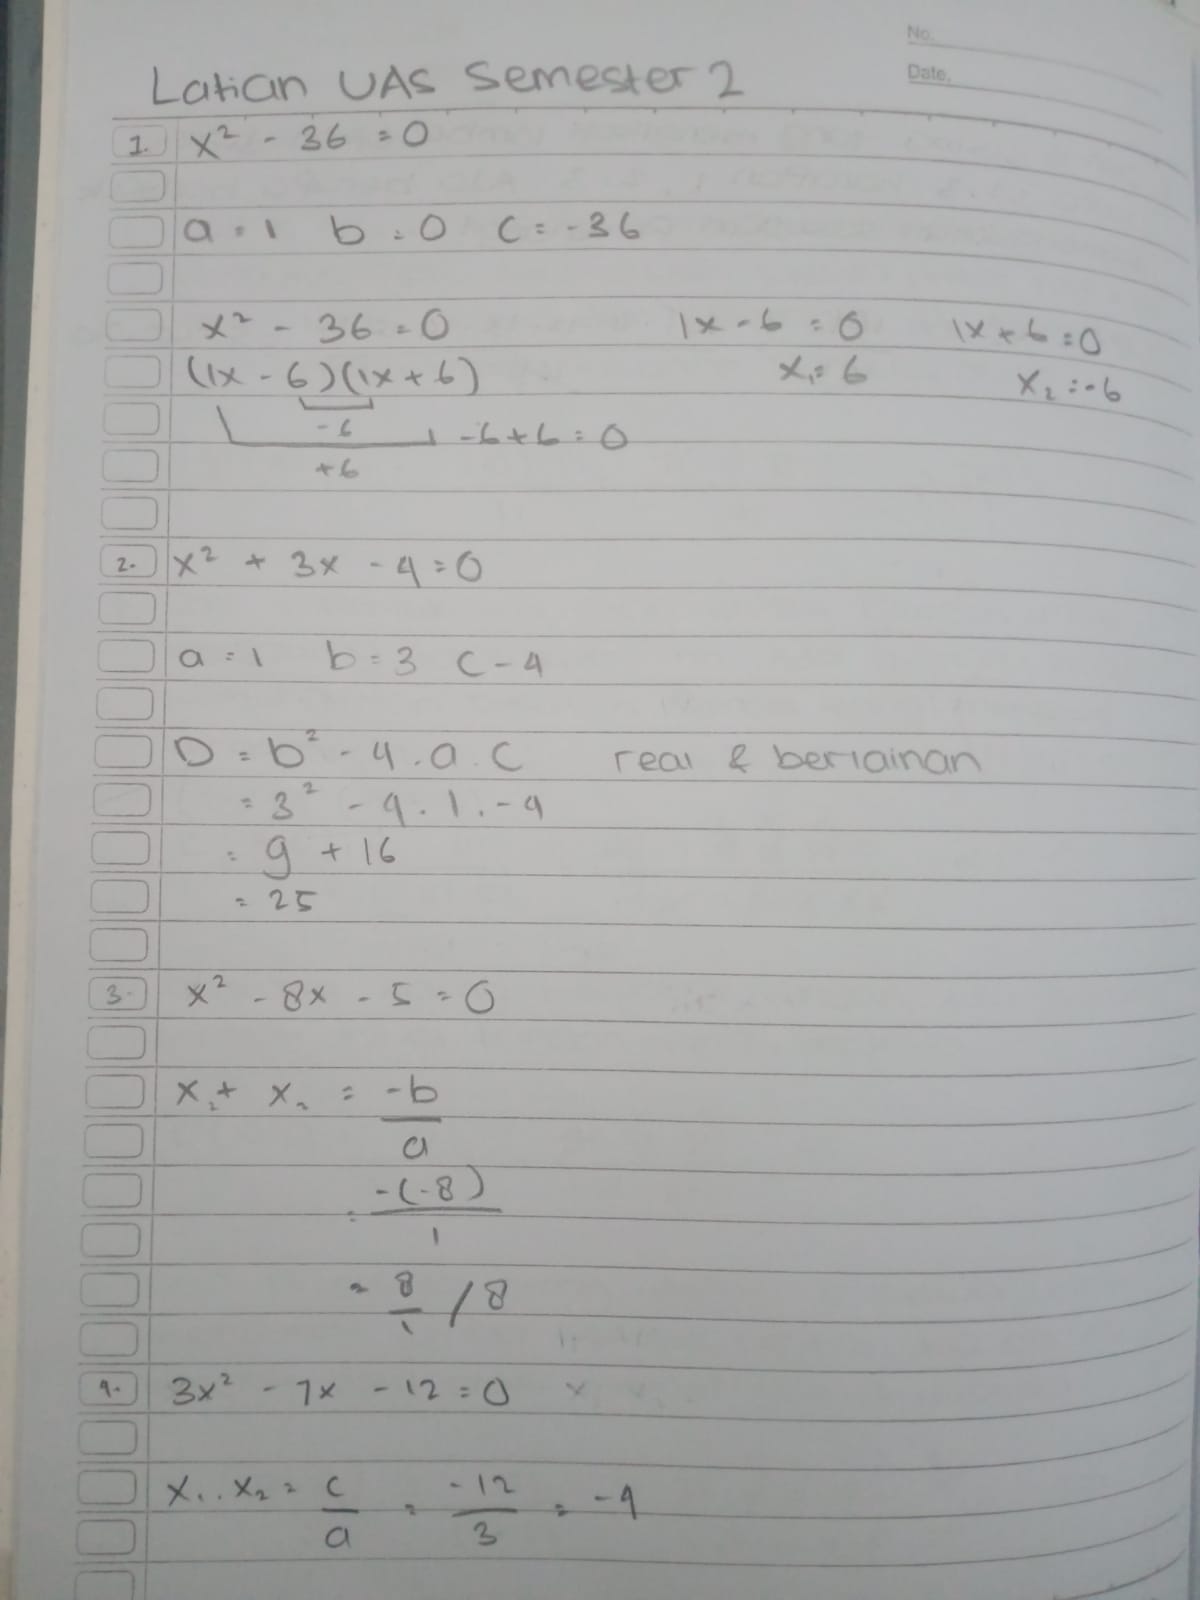 No.
Date.
Latian UAS Semester 2
1. x² - 36 = 0
a = 1 b = 0 c = -36
x² - 36 = 0 1x - 6 = 0 1x + 6 = 0
(1x - 6)(1x + 6) x₁ = 6 x₂ = -6
-6
-6 + 6 = 0
+6
2. x² + 3x - 4 = 0
a = 1 b = 3 c - 4
D = b² - 4 . a . c real & berlainan
= 3² - 4 . 1 . - 4
= 9 + 16
= 25
3. x² - 8x - 5 = 0
x₁ + x₂ = -b
a
= -(-8)
1
= 8 / 8
1
4. 3x² - 7x - 12 = 0
x₁ . x₂ = c = -12 = -4
a 3